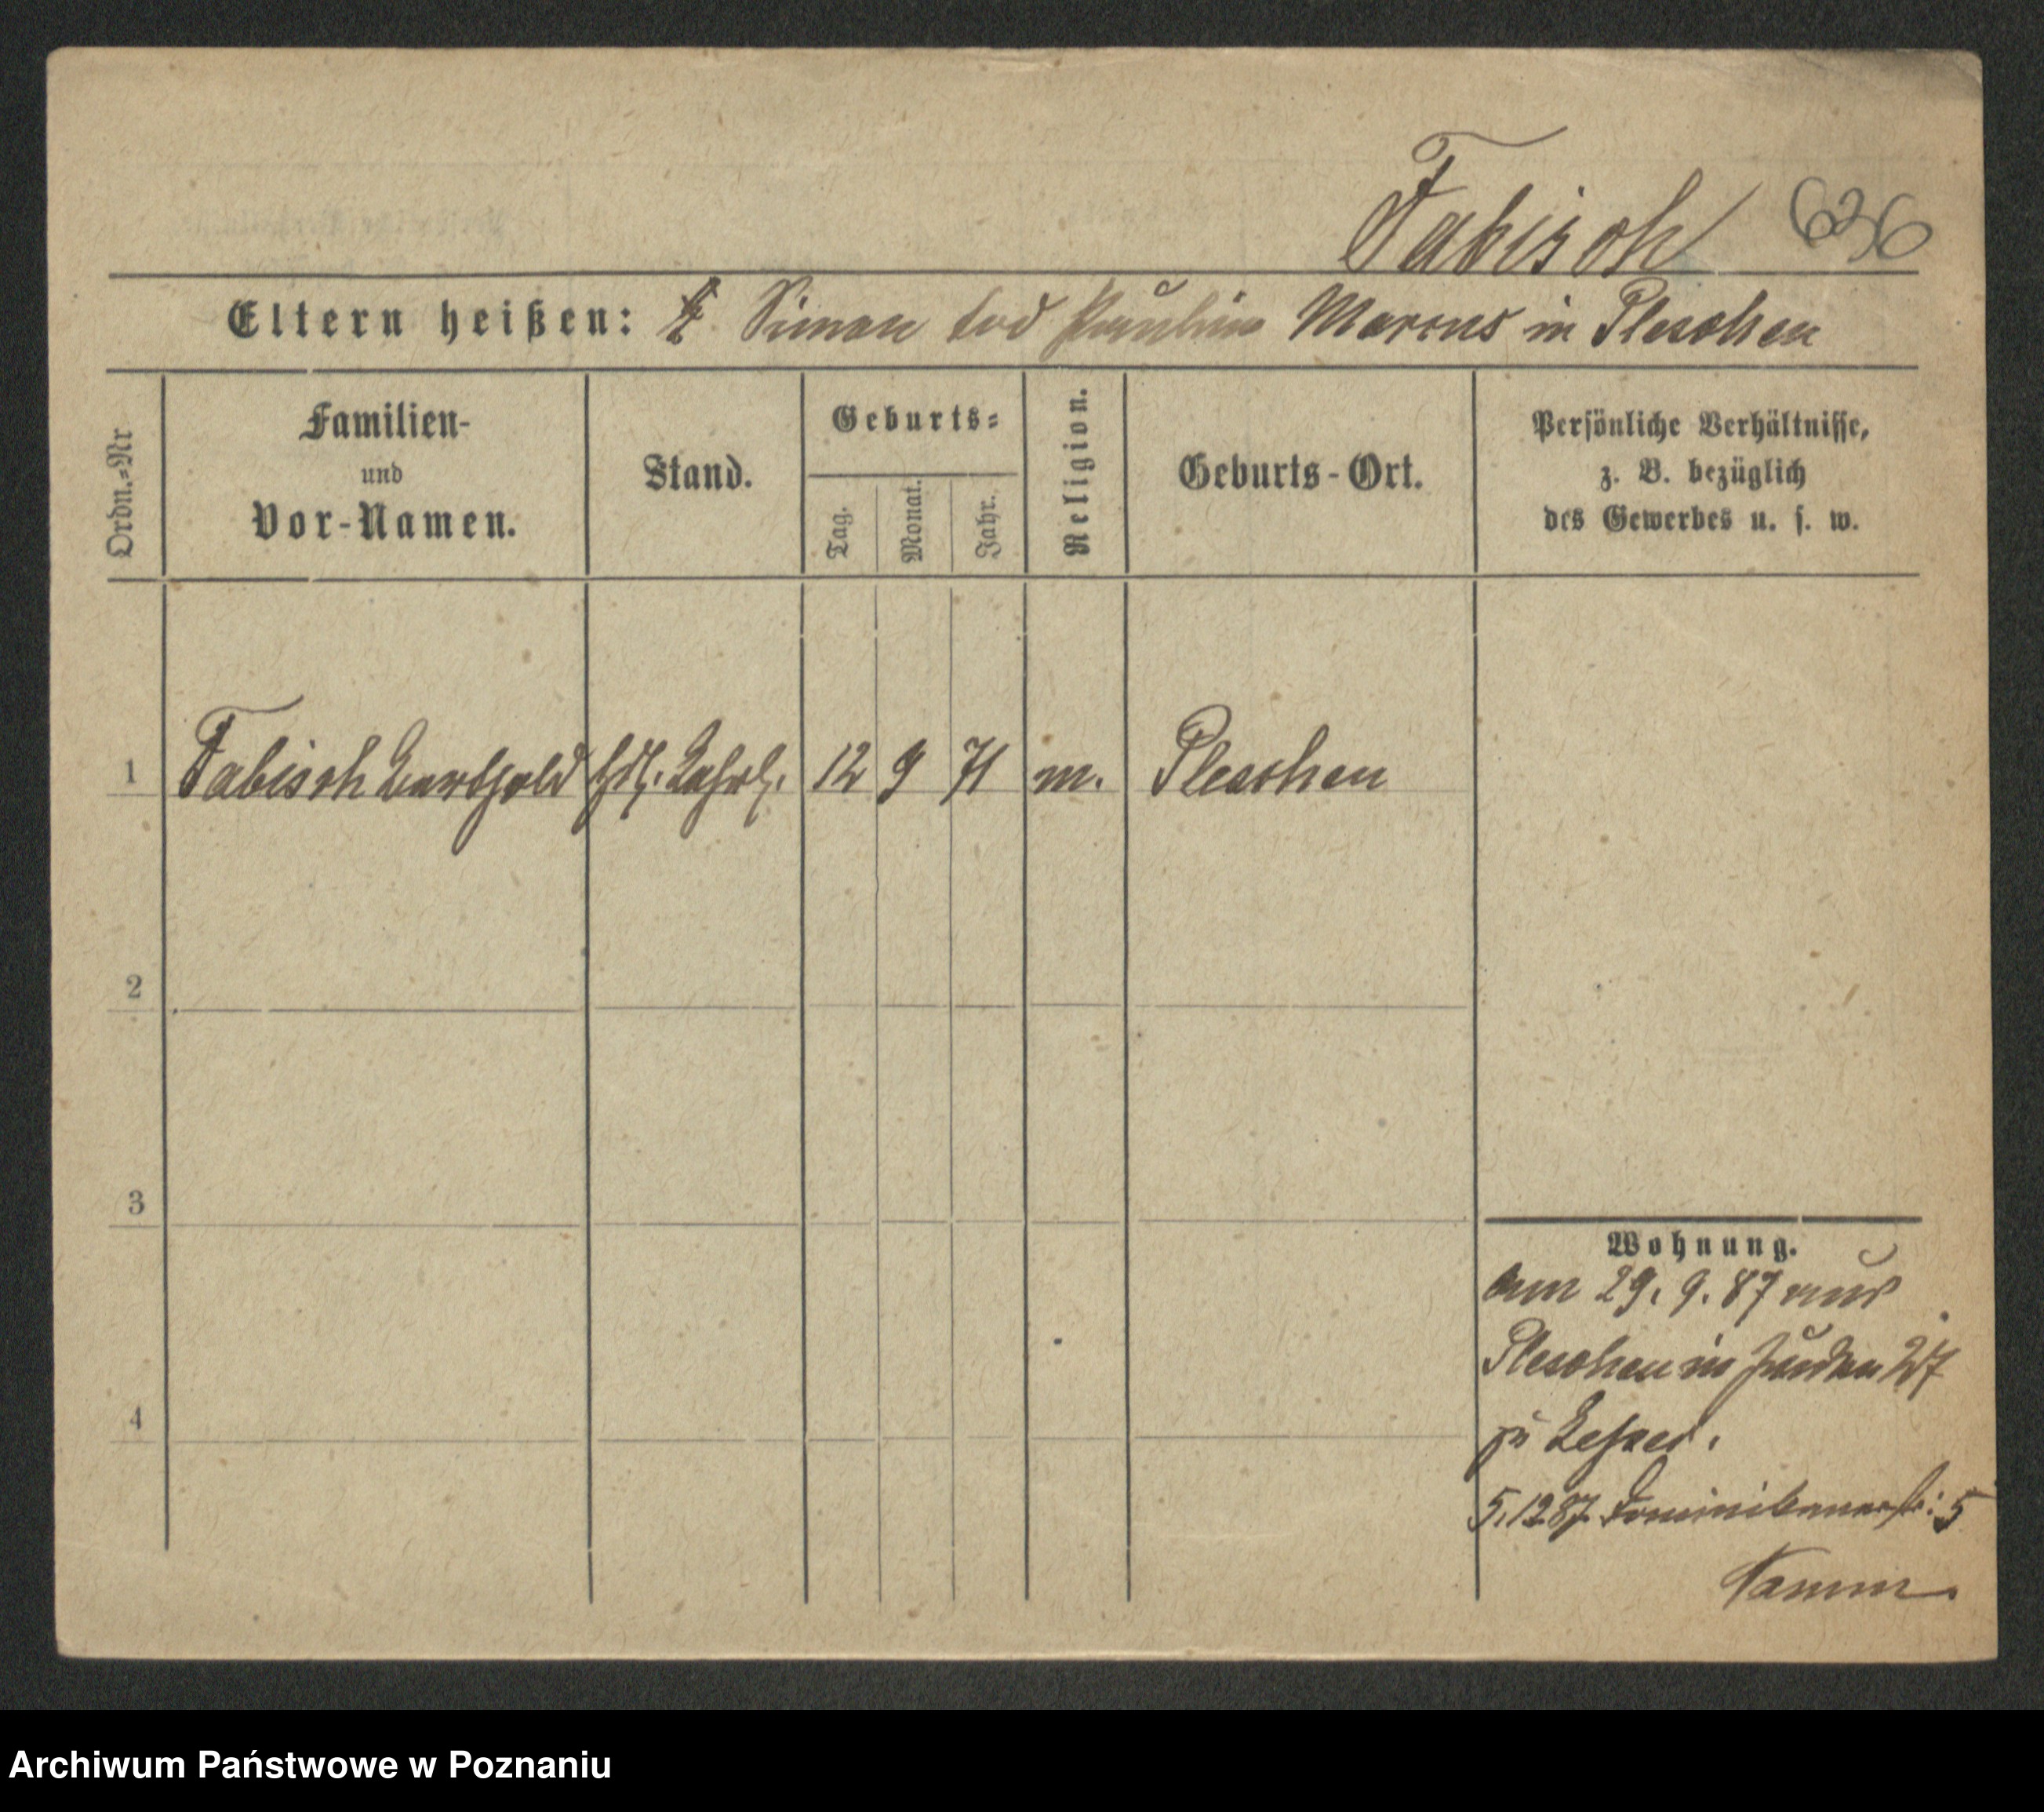 Fabisch 636
Eltern heißen: Simon tod Pauline Marcus in Pleschen
Ordn.=Nr
Familien-
und
Vor-Namen.
Stand.
Geburts=
Tag.
Monat.
Jahr.
Religion.
Geburts-Ort.
Persönliche Verhältnisse,
z. B. bezüglich
des Gewerbes u. s. w.
1 Fabisch Berthold Hdl. Lehrl. 12 9 71 m. Pleschen
2
3
4
Wohnung.
am 29. 9. 87 aus
Pleschen in Juden 27
zu Lesser.
5.12 87. Dominikanerstr: 5
Archiwum Państwowe w Poznaniu